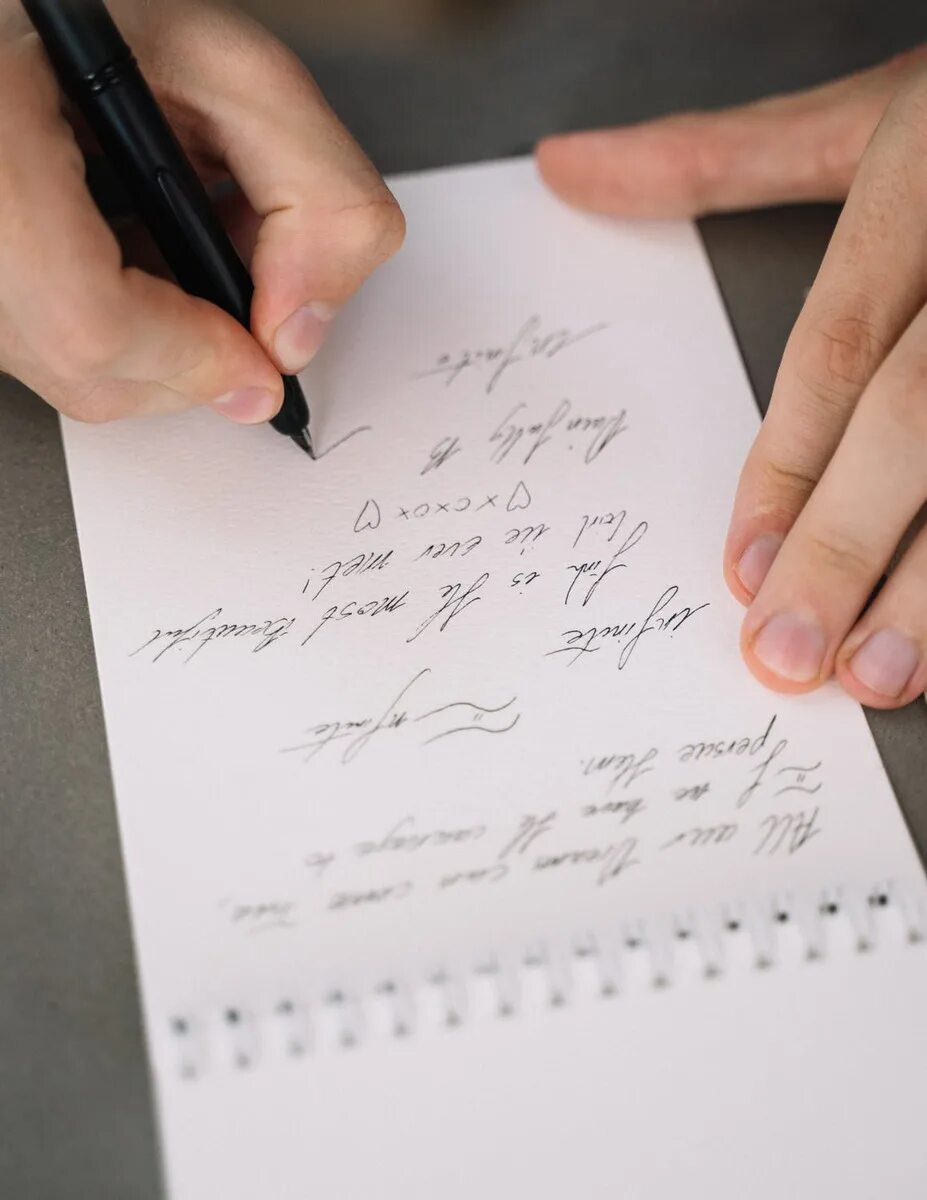 All our Dream can come True,
if we have the courage to
persue them.
infinite
infinite
Linh is the most Beautiful
Girl i've ever met!
♡xoxox♡
Painfully B
infinite